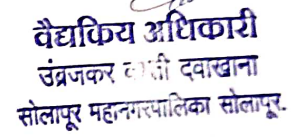 वैद्यकिय अधिकारी
उंब्रजकर दवाखाना
सोलापूर महानगरपालिका सोलापूर.